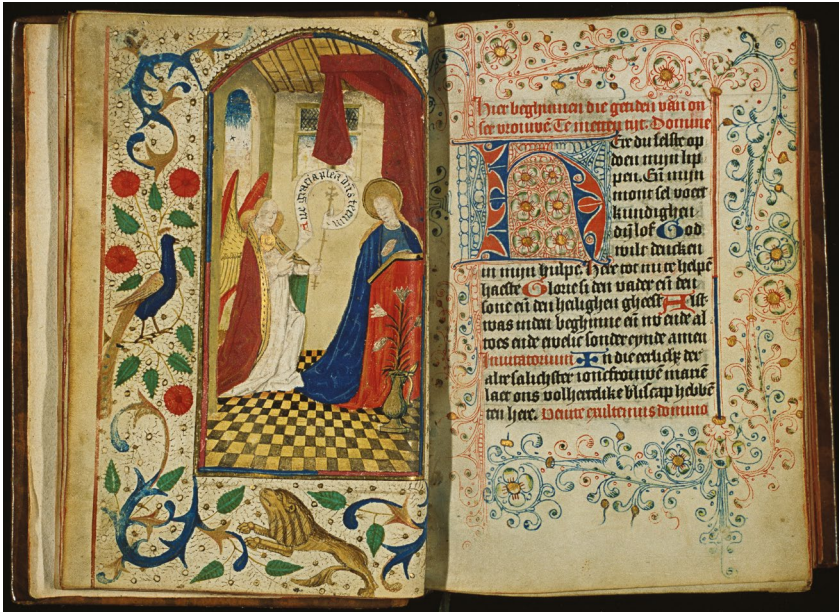 Aue gracia plena dns tecum
Hier beghinnen die getiden van on
ser vrouwē Te metten tijt. Domine
Here du selste op
doen mijn lip
pen. Eñ mijn
mont sel voert
kundighen
dij lof God
wilt dencken
in mijn hulpe. Here tot mi te helpē
haeste Glorie si den vader eñ den
sone eñ den heilighen gheest Alst
was inden beghinne eñ nv ende al
toes ende ewelic sonder eynde amen
Inuitatorium In die eerlicƺ der
alre salichster ioncfrouwē mariē
laet ons volhertelike bliscap hebbē
ten here. Venite exultemus domino